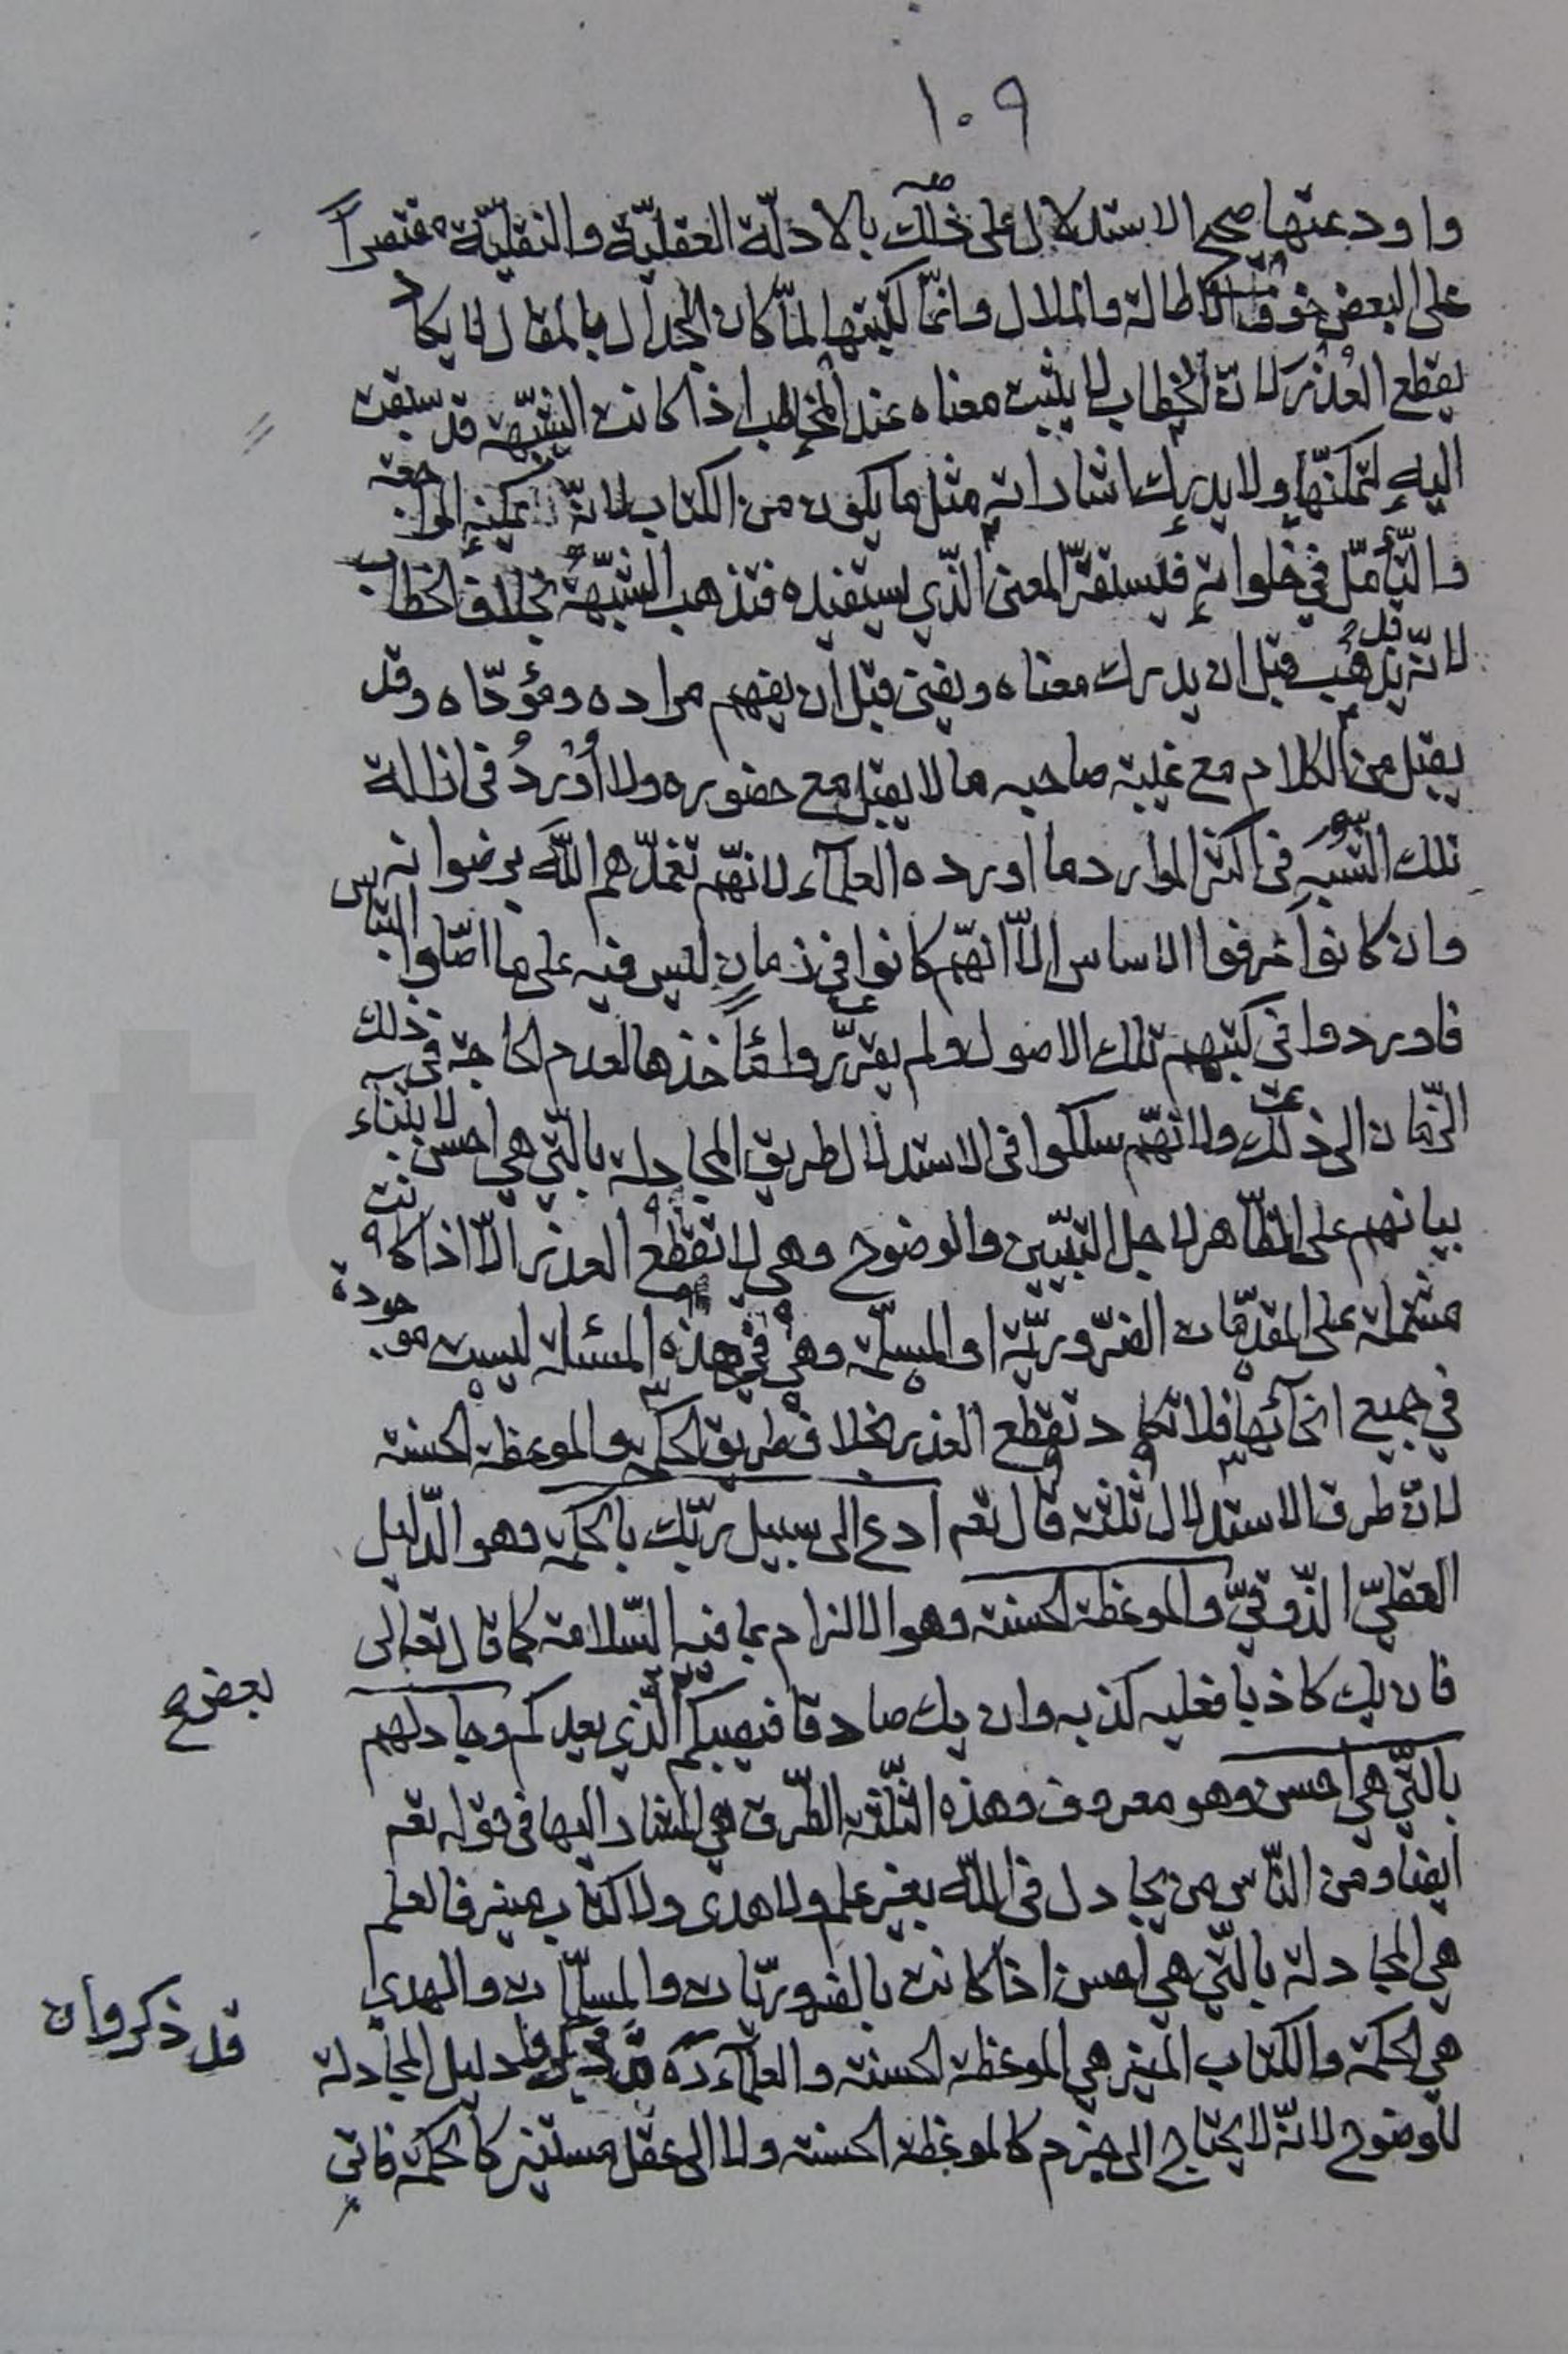 ١٠٩
واودعتها صحيح الاستدلال على ذلك بالادلّة العقليّة والنقليّة مقتصراً
على البعض خوف الاطالة والملال وانّما كتبتها لمّا كان الجدال بالمقال لا يكاد
يقطع العذر لانّ الخطاب لا يثبت معناه عند المخاطب اذا كانت الشبهة قد سبقت
اليه لتمكنّها ولا يدرك اشاراته مثل ما يكون من الكتاب لانّه يمكنه المراجعة
والتّأمّل في خلواته فيستقرّ المعنى الّذي يستفيده فتذهب الشّبهة بخلاف الخطاب
لانّه قد يذهب قبل ان يدرك معناه ويفنى قبل أن يفهم مراده ومؤدّاه وقد
يقبل من الكلام مع غيبة صاحبه ما لا يقبل مع حضوره ولا أُورِدُ في ازالة
تلك الشّبه في اكثر الموارد ما اورده العلمآء لانّهم تغمّدهم اللّه برضوانه
وان كانوا عرفوا الاساس الّا انّهم كانوا في زمانٍ لبس فيه على ما اصّلوا النّاس
فاوردوا في كتبهم تلك الاصول ولم يقرّروا مأخذها لعدم الحاجة في ذلك
الزّمان الى ذلك ولانّهم سلكوا في الاستدلال طريق المجادلة بالّتي هي احسن لابتناء
بيانهم على الظّاهر لاجل التبيّين والوضوح وهي لا تقطع العذر الّا اذا كانت
مشتملة على المقدّمات الضّروريّة او المسلّمة وهي في هذه المسئلة ليست موجودة
في جميع انحائها فلا تكاد تقطع العذر بخلاف طريق الحكمة والموعظة الحسنة
لانّ طرق الاستدلال ثلثة قال تعم ادع الى سبيل ربّك بالحكمة وهو الدّليل
العقليّ الذّوقيّ والموعظة الحسنة وهو الالزام بما فيه السّلامة كما قال تعالى
فان يك كاذبا فعليه كذبه وان يك صادقا فيصبكم بعض الّذي يعدكم وجادلهم
بالّتي هي احسن وهو معروف وهذه الثّلثة الطّرق هي المشار اليها في قوله تعم
ايضا ومن النّاس من يجادل في اللّه بغير علم ولا هدى ولا كتاب منير فالعلم
هي المجادلة بالّتي هي احسن اذا كانت بالضروريّات والمسلّمات والهدى
هي الحكمة والكتاب المنير هي الموعظة الحسنة والعلمآء ره قد ذكروا دليل المجادلة
للوضوح لانّه لا يحتاج الى حزم كالموعظة الحسنة ولا الى عقل مستنير كالحكمة فاتى
بعض ح
قد ذكروا ن